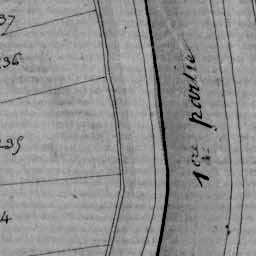 37
36
235
4
1ère partie